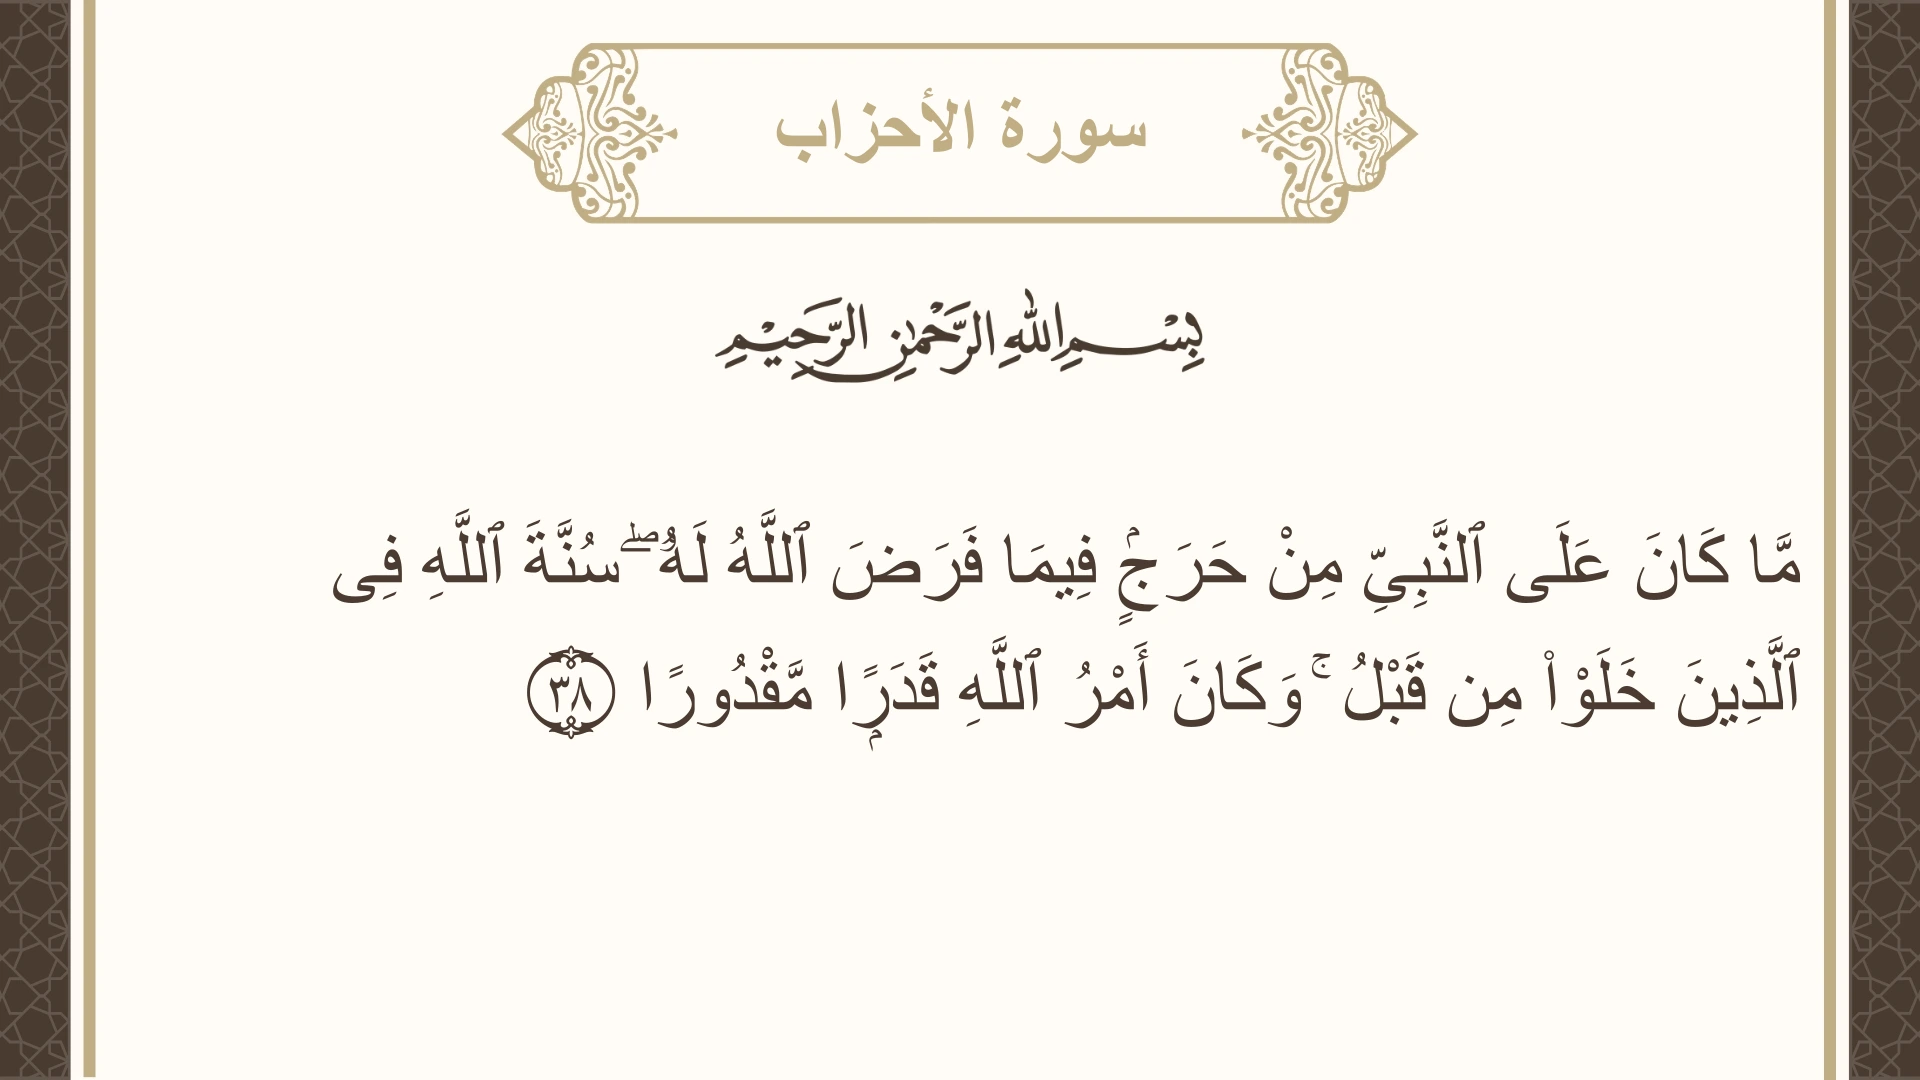 سورة الأحزاب
بِسْمِ اللهِ الرَّحْمٰنِ الرَّحِيْمِ
مَّا كَانَ عَلَى ٱلنَّبِىِّ مِنْ حَرَجٍۢ فِيمَا فَرَضَ ٱللَّهُ لَهُۥ ۖ سُنَّةَ ٱللَّهِ فِى
ٱلَّذِينَ خَلَوْا۟ مِن قَبْلُ ۚ وَكَانَ أَمْرُ ٱللَّهِ قَدَرًۭا مَّقْدُورًا ٣٨